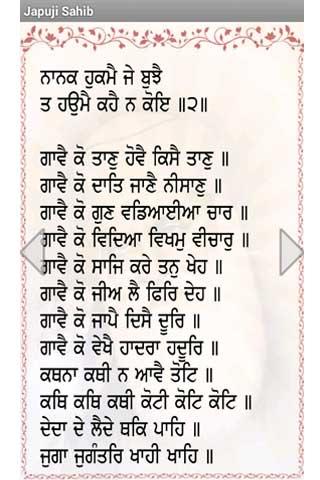 Japuji Sahib
ਨਾਨਕ ਹੁਕਮੈ ਜੇ ਬੁਝੈ
ਤ ਹਉਮੈ ਕਹੈ ਨ ਕੋਇ ॥੨॥
ਗਾਵੈ ਕੋ ਤਾਣੁ ਹੋਵੈ ਕਿਸੈ ਤਾਣੁ ॥
ਗਾਵੈ ਕੋ ਦਾਤਿ ਜਾਣੈ ਨੀਸਾਣੁ ॥
ਗਾਵੈ ਕੋ ਗੁਣ ਵਡਿਆਈਆ ਚਾਰ ॥
ਗਾਵੈ ਕੋ ਵਿਦਿਆ ਵਿਖਮੁ ਵੀਚਾਰੁ ॥
ਗਾਵੈ ਕੋ ਸਾਜਿ ਕਰੇ ਤਨੁ ਖੇਹ ॥
ਗਾਵੈ ਕੋ ਜੀਅ ਲੈ ਫਿਰਿ ਦੇਹ ॥
ਗਾਵੈ ਕੋ ਜਾਪੈ ਦਿਸੈ ਦੂਰਿ ॥
ਗਾਵੈ ਕੋ ਵੇਖੈ ਹਾਦਰਾ ਹਦੂਰਿ ॥
ਕਥਨਾ ਕਥੀ ਨ ਆਵੈ ਤੋਟਿ ॥
ਕਥਿ ਕਥਿ ਕਥੀ ਕੋਟੀ ਕੋਟਿ ਕੋਟਿ ॥
ਦੇਦਾ ਦੇ ਲੈਦੇ ਥਕਿ ਪਾਹਿ ॥
ਜੁਗਾ ਜੁਗੰਤਰਿ ਖਾਹੀ ਖਾਹਿ ॥